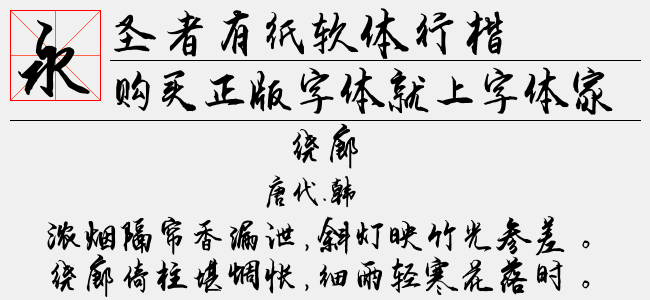 永
圣者有纸软体行楷
购买正版字体就上字体家
绕廊
唐代.韩
浓烟隔帘香漏泄,斜灯映竹光参差。
绕廊倚柱堪惆怅,细雨轻寒花落时。